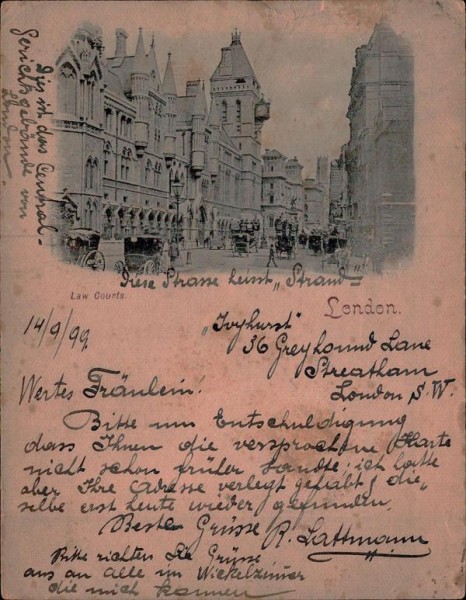 Dies ist das Central-
Gerichtsgebäude von
London.
Diese Strasse heisst „Strand"
Law Courts.
London.
14/9/99
„Ivyhurst"
36 Greyhound Lane
Streatham
London S.W.
Wertes Fräulein!
Bitte um Entschuldigung
dass Ihnen die versprochene Karte
nicht schon früher sandte; ich hatte
aber Ihre Adresse verlegt gehabt & die„
selbe erst heute wieder gefunden.
Beste Grüsse R. Lattmann
Bitte richten Sie Grüsse
aus an alle im Wickelzimmer
die mich kennen